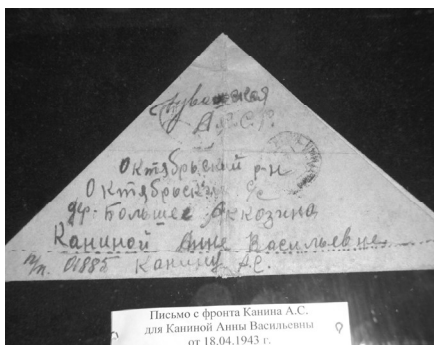 Чувашская
А.С.С.Р.
Октябрьский р-н
Октябрьский с/с
дер. Большое Аккозино
Каниной Анне Васильевне
п/п. 01885 Канину А.С.
Письмо с фронта Канина А.С.
для Каниной Анны Васильевны
от 18.04.1943 г.